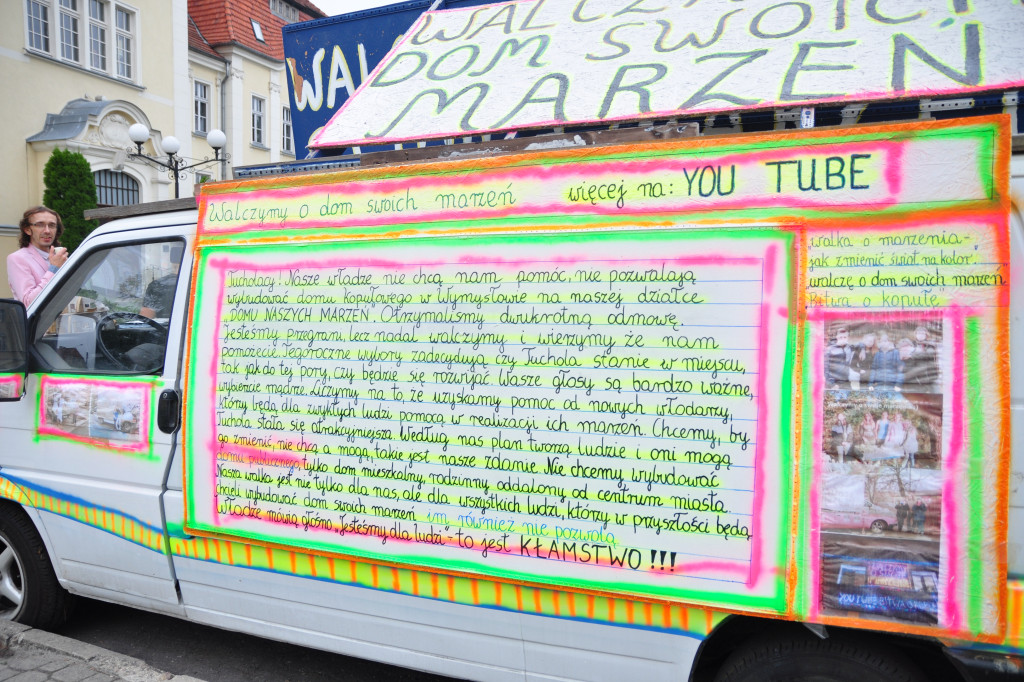 WAL
WALCZ
DOM SWOICH
MARZEŃ
Walczymy o dom swoich marzeń więcej na: YOU TUBE
Tucholacy! Nasze władze nie chcą nam pomóc, nie pozwalają
wybudować domu kopułowego w Wymysłowie na naszej działce
„DOMU NASZYCH MARZEŃ". Otrzymaliśmy dwukrotną odmowę.
Jesteśmy przegrani, lecz nadal walczymy i wierzymy że nam
pomożecie. Tegoroczne wybory zadecydują czy Tuchola stanie w miejscu,
tak jak do tej pory, czy będzie się rozwijać. Wasze głosy są bardzo ważne,
wybierzcie mądrze. Liczymy na to, że uzyskamy pomoc od nowych włodarzy,
którzy będą dla zwykłych ludzi pomocą w realizacji ich marzeń. Chcemy, by
Tuchola stała się atrakcyjniejsza. Według nas plan tworzą ludzie i oni mogą
go zmienić, nie chcą a mogą, takie jest nasze zdanie. Nie chcemy wybudować
domu publicznego, tylko dom mieszkalny, rodzinny oddalony od centrum miasta.
Nasza walka jest nie tylko dla nas, ale dla wszystkich ludzi, którzy w przyszłości będą
chcieli wybudować dom swoich marzeń im również nie pozwolą.
Władze mówią głośno „Jesteśmy dla ludzi - to jest KŁAMSTWO!!!
„walka o marzenia-
„jak zmienić świat na kolor".
walczę o dom swoich marzeń
Bitwa o kopułę